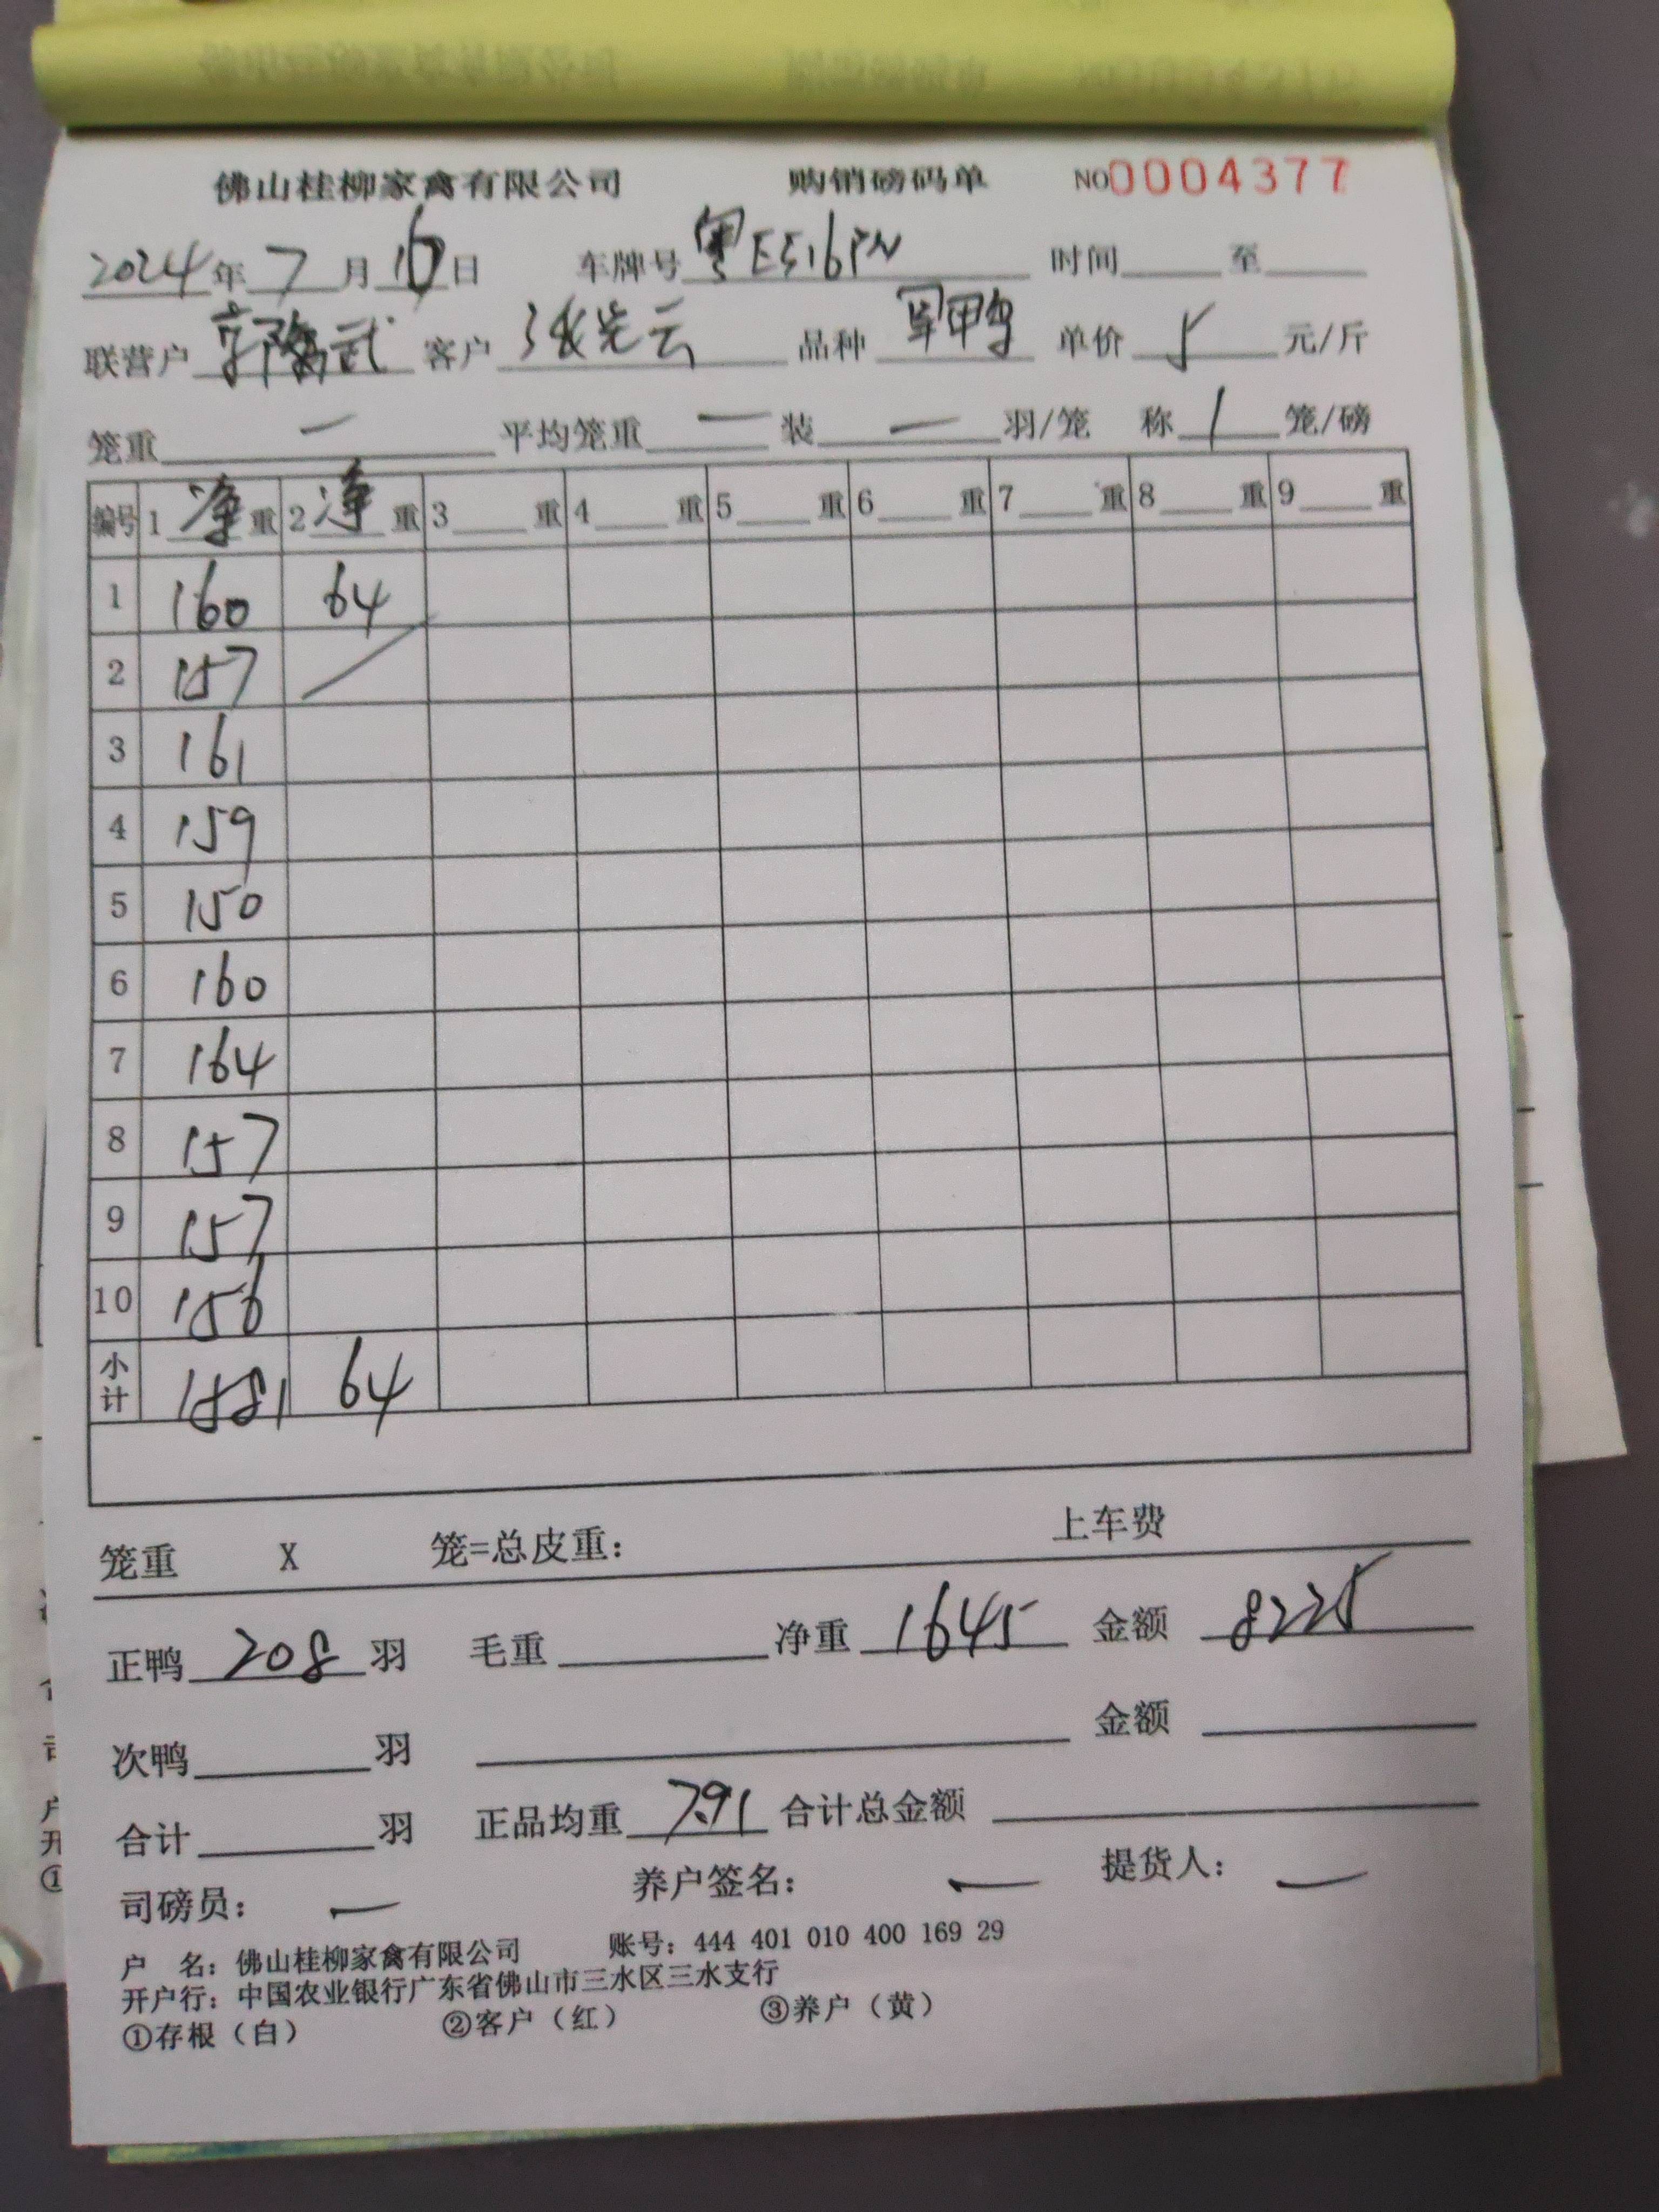 佛山桂柳家禽有限公司 购销磅码单 NO0004377
2024年7月16日 车牌号 粤E516PN 时间 至
联营户 武 客户 张先云 品种 鸭 单价 5 元/斤
笼重 一 平均笼重 一 装 一 羽/笼 称 1 笼/磅
编号 1 净 重 2 净 重 3 重 4 重 5 重 6 重 7 重 8 重 9 重
1 160 64
2 157 /
3 161
4 159
5 150
6 160
7 164
8 157
9 157
10 156
小计 1581 64
笼重 X 笼=总皮重: 上车费
正鸭 208 羽 毛重 净重 1645 金额 8225
次鸭 羽 金额
合计 羽 正品均重 7.91 合计总金额
司磅员: 一 养户签名: 一 提货人: 一
户 名: 佛山桂柳家禽有限公司 账号: 444 401 010 400 169 29
开户行: 中国农业银行广东省佛山市三水区三水支行
①存根（白） ②客户（红） ③养户（黄）